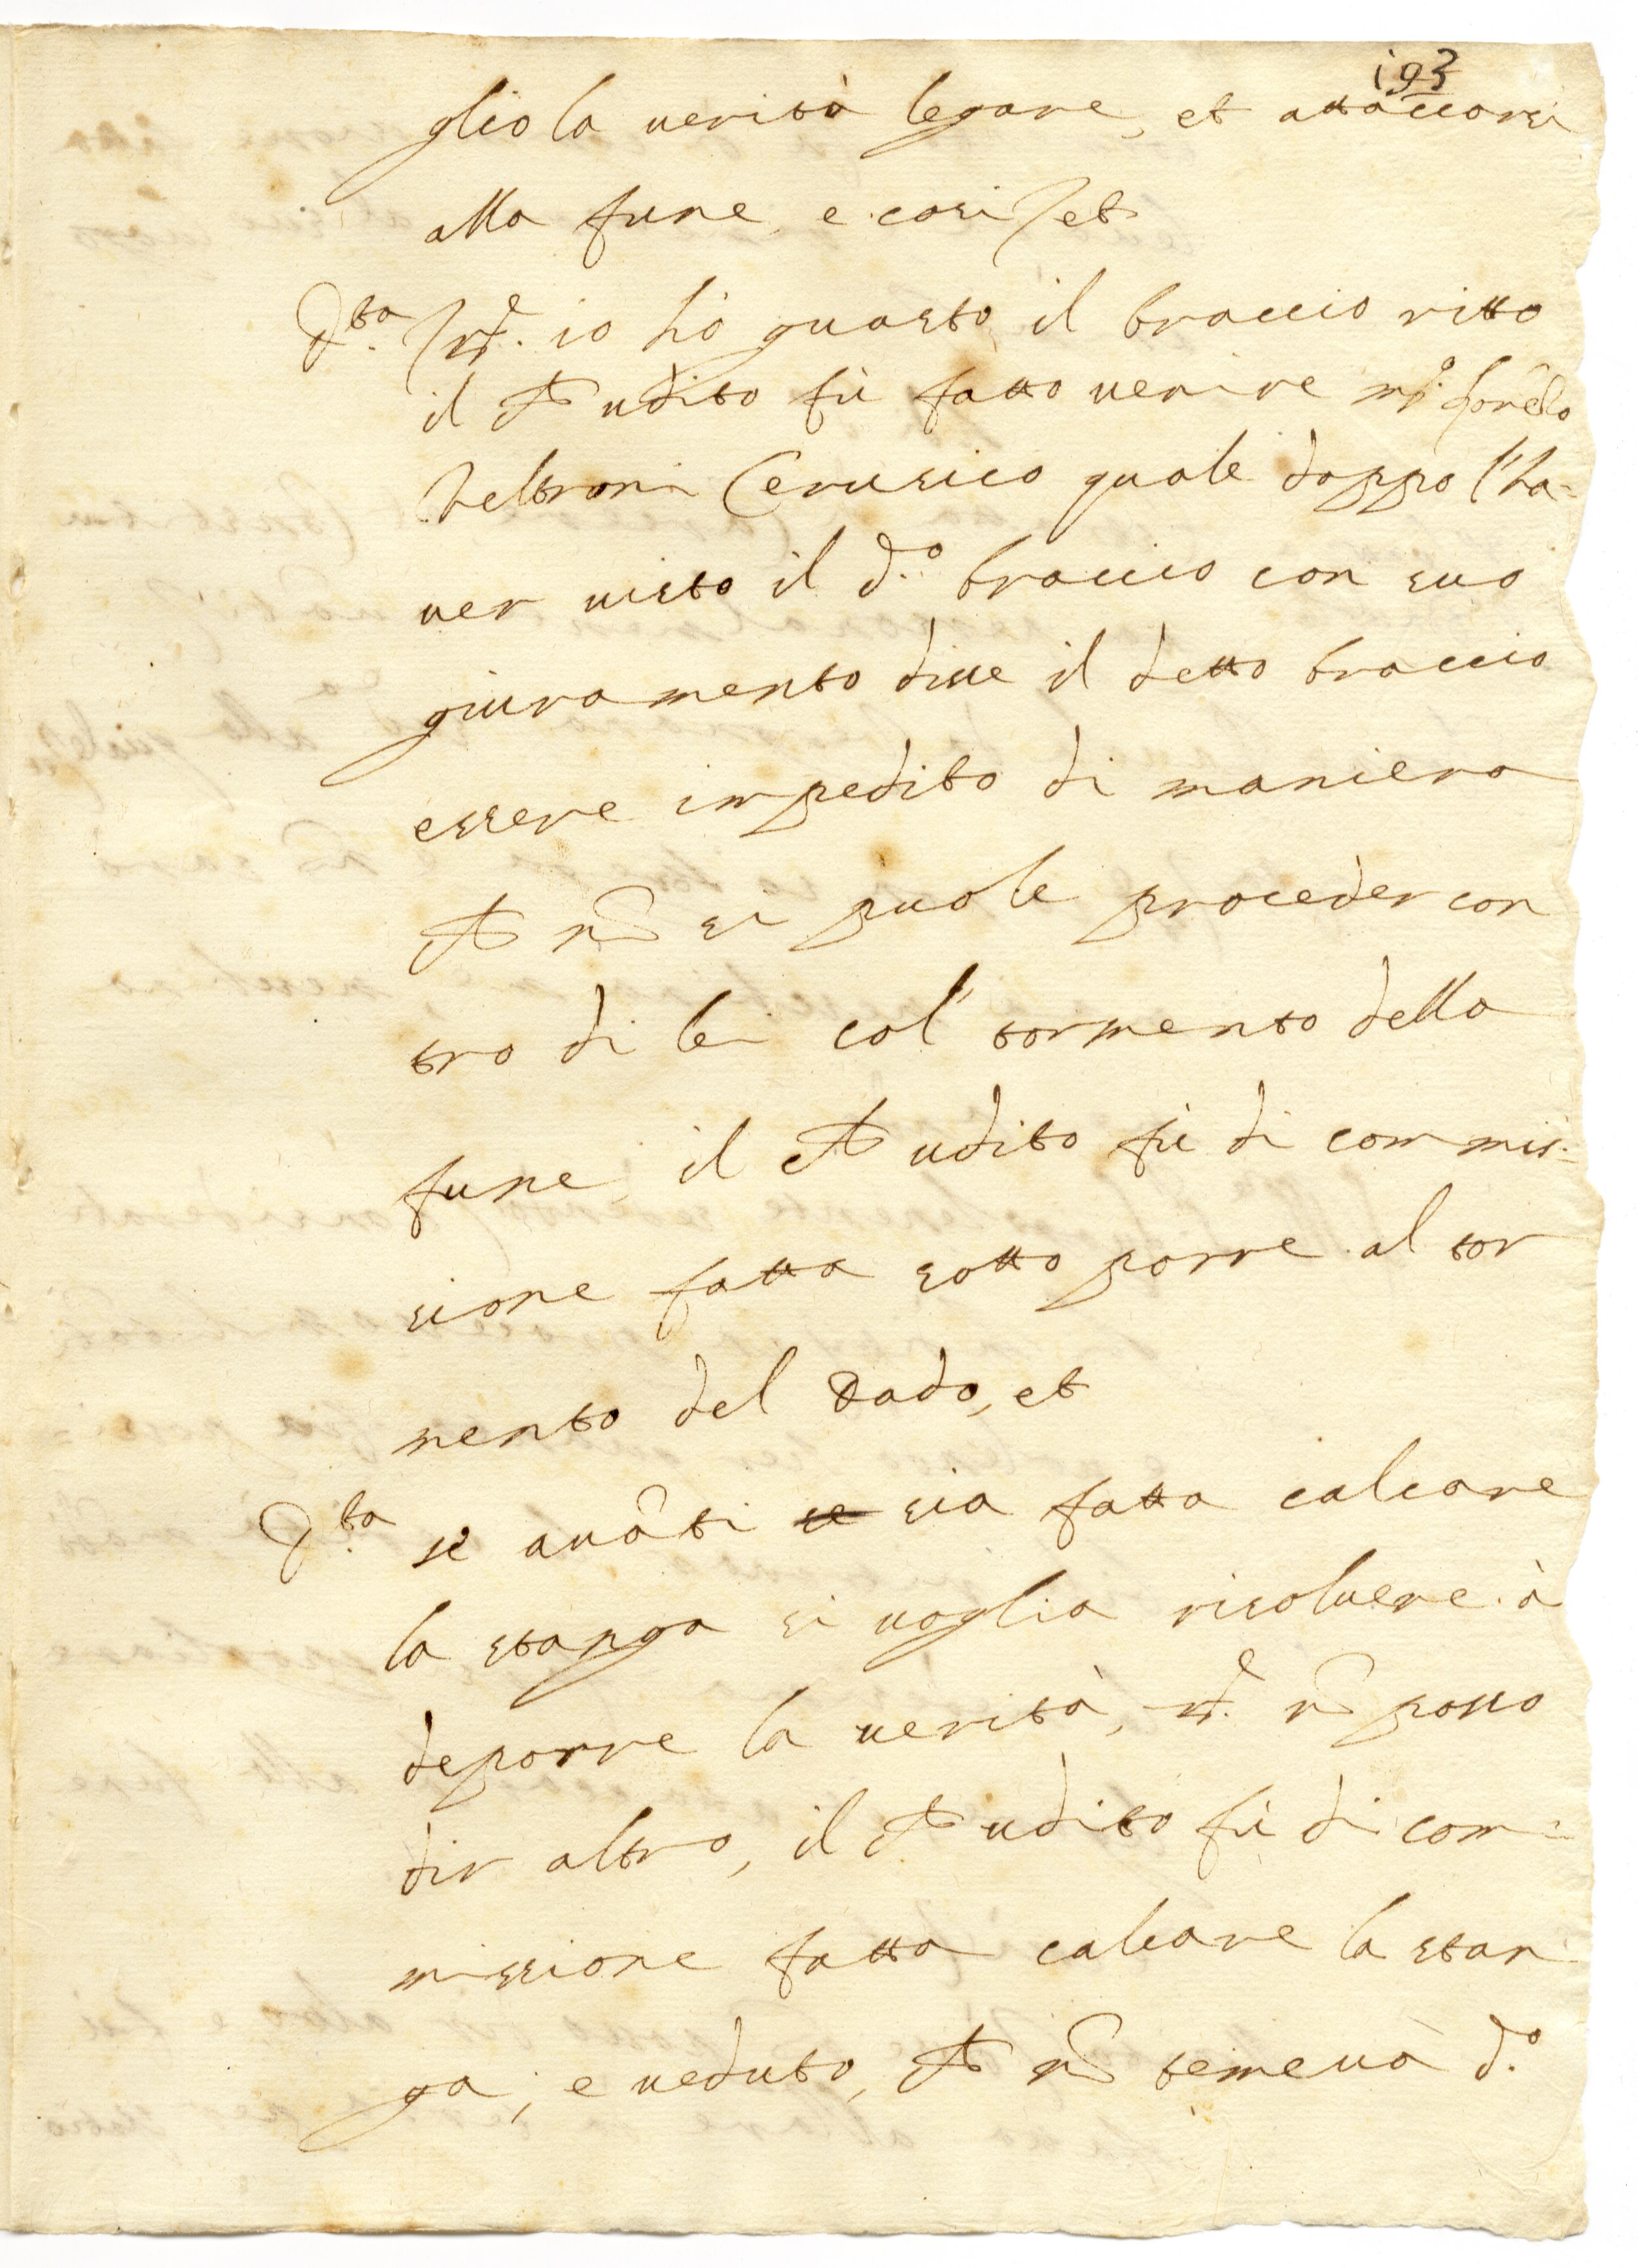 193
glio la uerità legare, et attaccarsi
alla fune, e cosi et
D.ta R.e io hò guasto il braccio ritto
il Che udito fù fatto uenire m.o
Beltrami Cerusico quale doppo l'ha-
uer uisto il d.o braccio con suo
giuramento disse il detto braccio
essere impedito di maniera
Che nõ si puole proceder con
tro di lei col' tormento della
fune, il Che udito fù di commis-
sione fatta sotto porre al tor
mento del Dado, et
D.ta se auãti se sia fatta calcare
la stanga si uoglia risoluere à
deporre la uerità, R.e nõ posso
dir altro, il Che udito fù di com-
missione fatta calcare la stan
ga, e ueduto, Che nõ temeua d.o